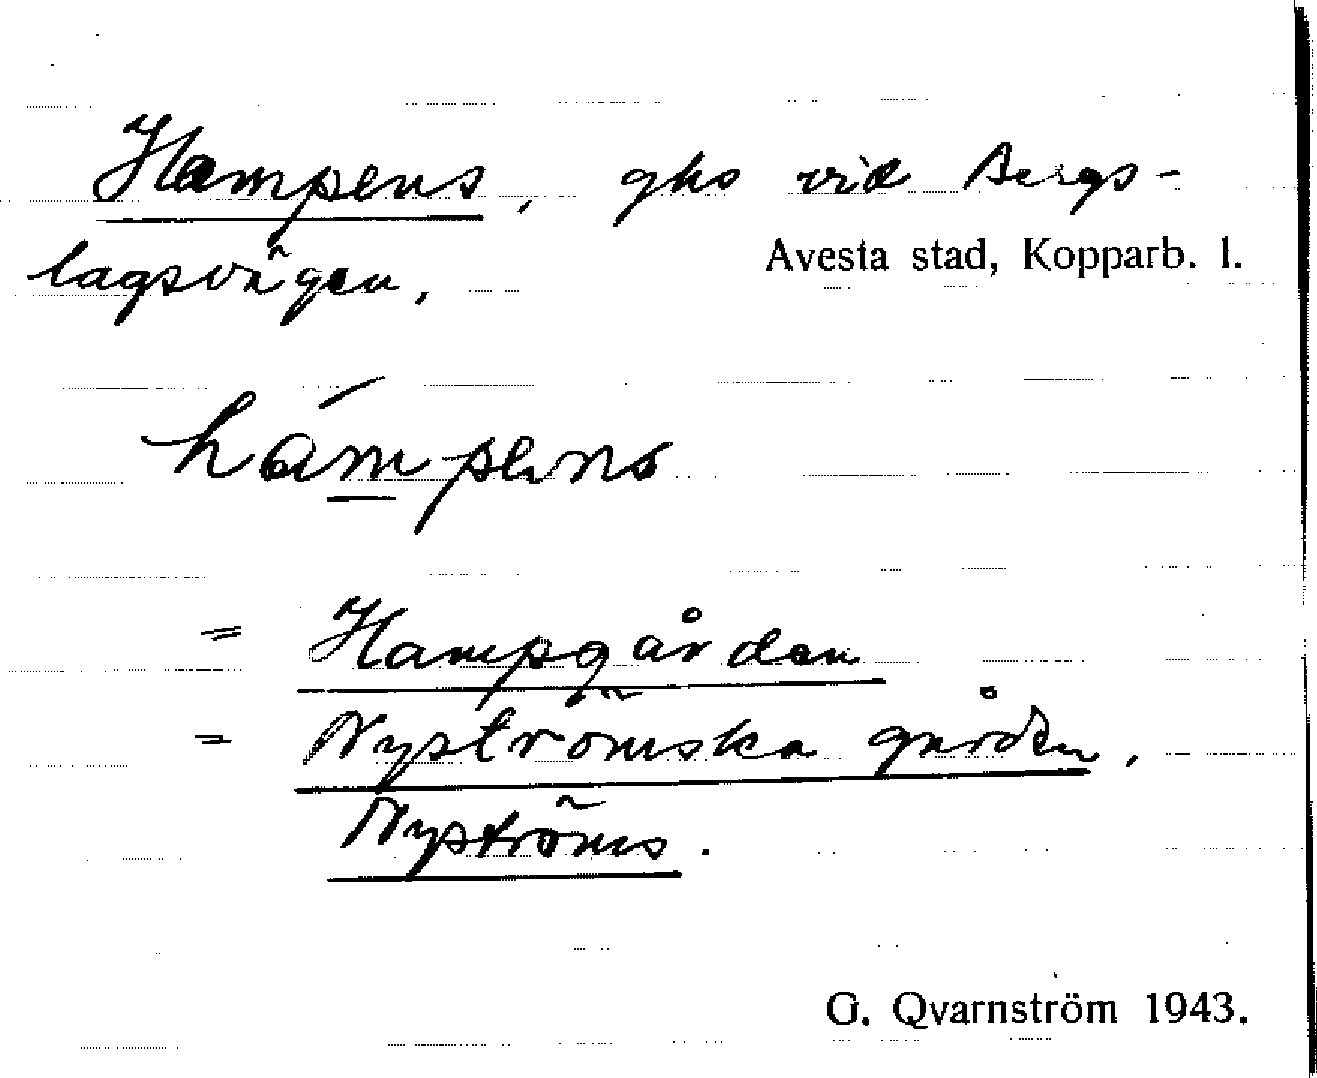 Hampens, gho vid Bergs-
Avesta stad, Kopparb. l.
lagsvägen.
hámpens
= Hampgården
= Nyströmska gården,
Nyströms.
G. Qvarnström 1943.